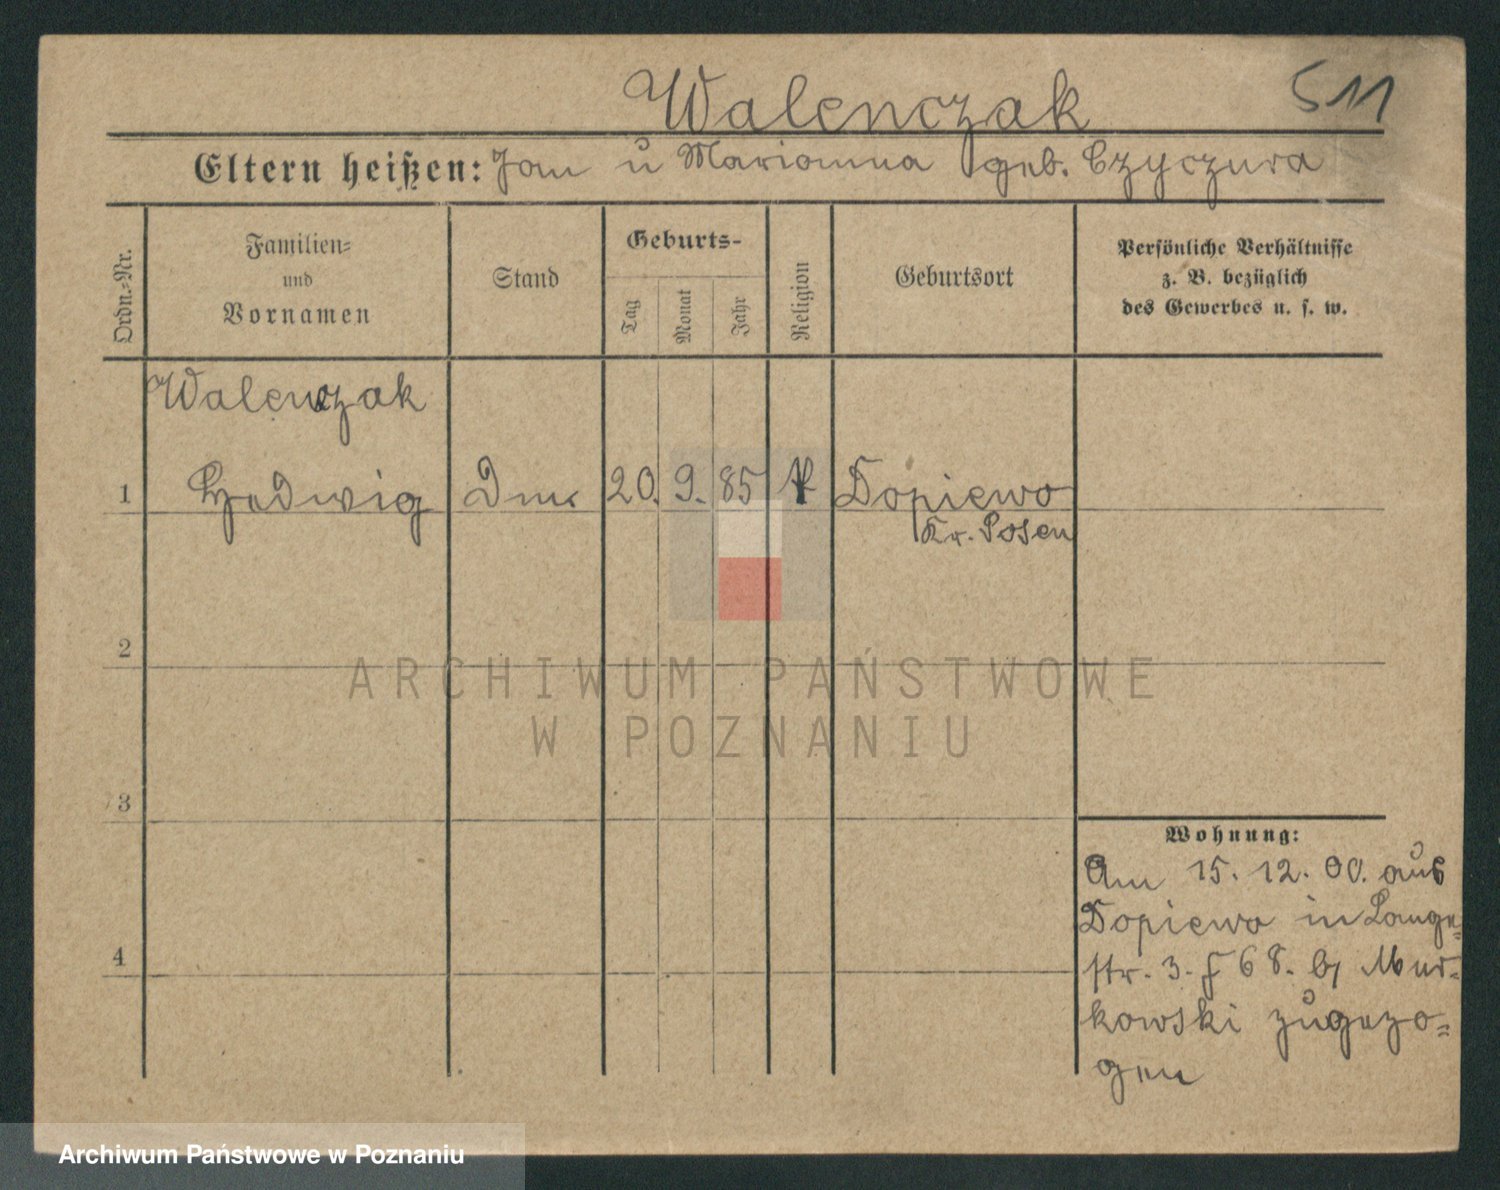 Walenczak
511
Eltern heißen: Jan u Marianna geb. Czyczura
Ordn.-Nr.
Familien-
und
Vornamen
Stand
Geburts-
Tag
Monat
Jahr
Religion
Geburtsort
Persönliche Verhältnisse
z. B. bezüglich
des Gewerbes u. s. w.
Walenczak
1 Hedwig 20. 9. 85 Dopiewo
Kr. Posen
2
ARCHIWUM PAŃSTWOWE
W POZNANIU
3
Wohnung:
Am 15. 12. 00. aus
Dopiewo in Lange-
4
str. 3. 68. b/ Mur-
kowski zugezo-
gen
Archiwum Państwowe w Poznaniu